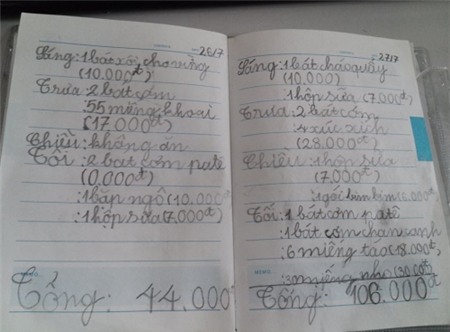 26/7
Sáng: 1 bát xôi cho vừng
(10.000đ)
Trưa: 2 bát cơm
: 55 miếng khoai
(17.000đ)
Chiều: không ăn
Tối: 2 bát cơm patê
(0,000đ)
: 1 bắp ngô (10.000
: 1 hộp sữa (7,000đ)
Tổng: 44.000
27/7
Sáng: 1 bát cháo quẩy
(10,000)
: 1 hộp sữa (7.000đ)
Trưa: 2 bát cơm
: 4 xúc xích
(28.000đ)
Chiều: 1 hộp sữa
(7.000đ)
: 1 gói bim bim (6.000đ)
Tối: 1 bát cơm patê
: 1 bát cơm chan canh
: 6 miếng táo (18.000đ)
: 3 miếng nho (30.000đ)
Tổng: 106.000đ